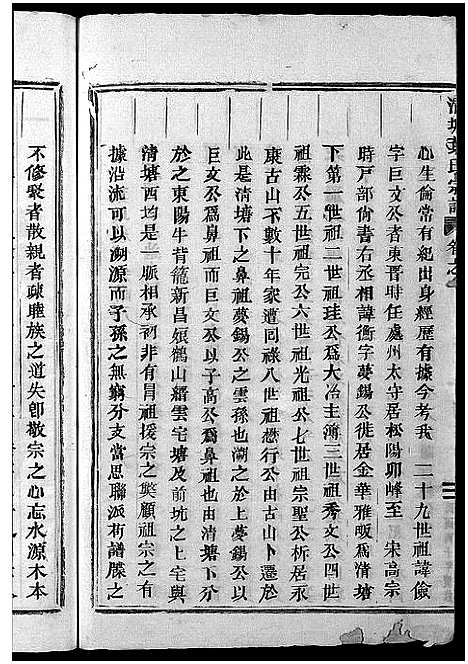 清塘 氏宗譜 卷之
心生倫常有紀出身經歷有據今考我 二十九世祖諱儉
字巨文公者東晋時任處州太守居松陽卯峰至 宋高宗
時戸部尙書右丞相諱衡字夢錫公徙居金華雅畈爲清塘
下第一世祖二世祖珪公爲大冶主簿三世祖秀文公四世
祖霖公五世祖完公六世祖光祖公七世祖宗聖公析居永
康古山下數十年家遭回祿八世祖懋行公由古山卜遷於
此是清塘下之鼻祖夢錫公之雲孫也溯之於上夢錫公以
巨文公爲鼻祖而巨文公以子高公爲鼻祖也由清塘下分
於之東陽牛背籠新昌娘鶴山縉雲宅塘及前坑之上宅與
清塘西均是一脈相承初非有冒祖援宗之獘顧祖宗之有
據沿流可以溯源而子孫之無窮分支當思聯派析譜牒之
不修聚者散親者疎睦族之道失卽敬宗之心忘水源木本